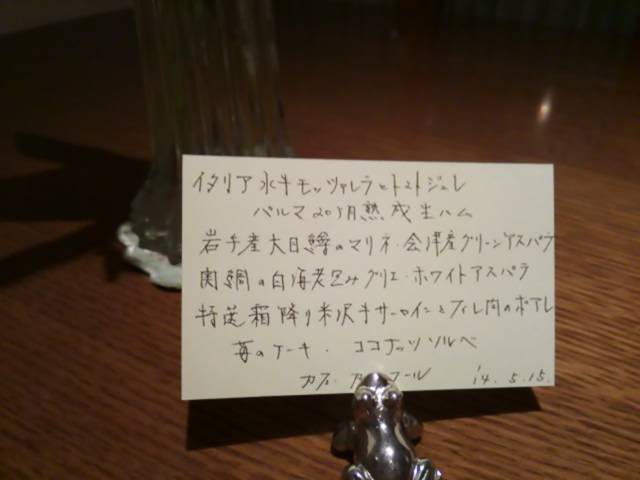 イタリア水牛モッツァレラとトマトジュレ
パルマ20ヶ月熟成生ハム
岩手産大目鱒のマリネ・会津産グリーンアスパラ
関鯛の白海老包みグリエ・ホワイトアスパラ
特選霜降り米沢牛サーロインとフィレ肉のポアレ
苺のケーキ・ココナッツソルベ
カフェ
'14.5.15.